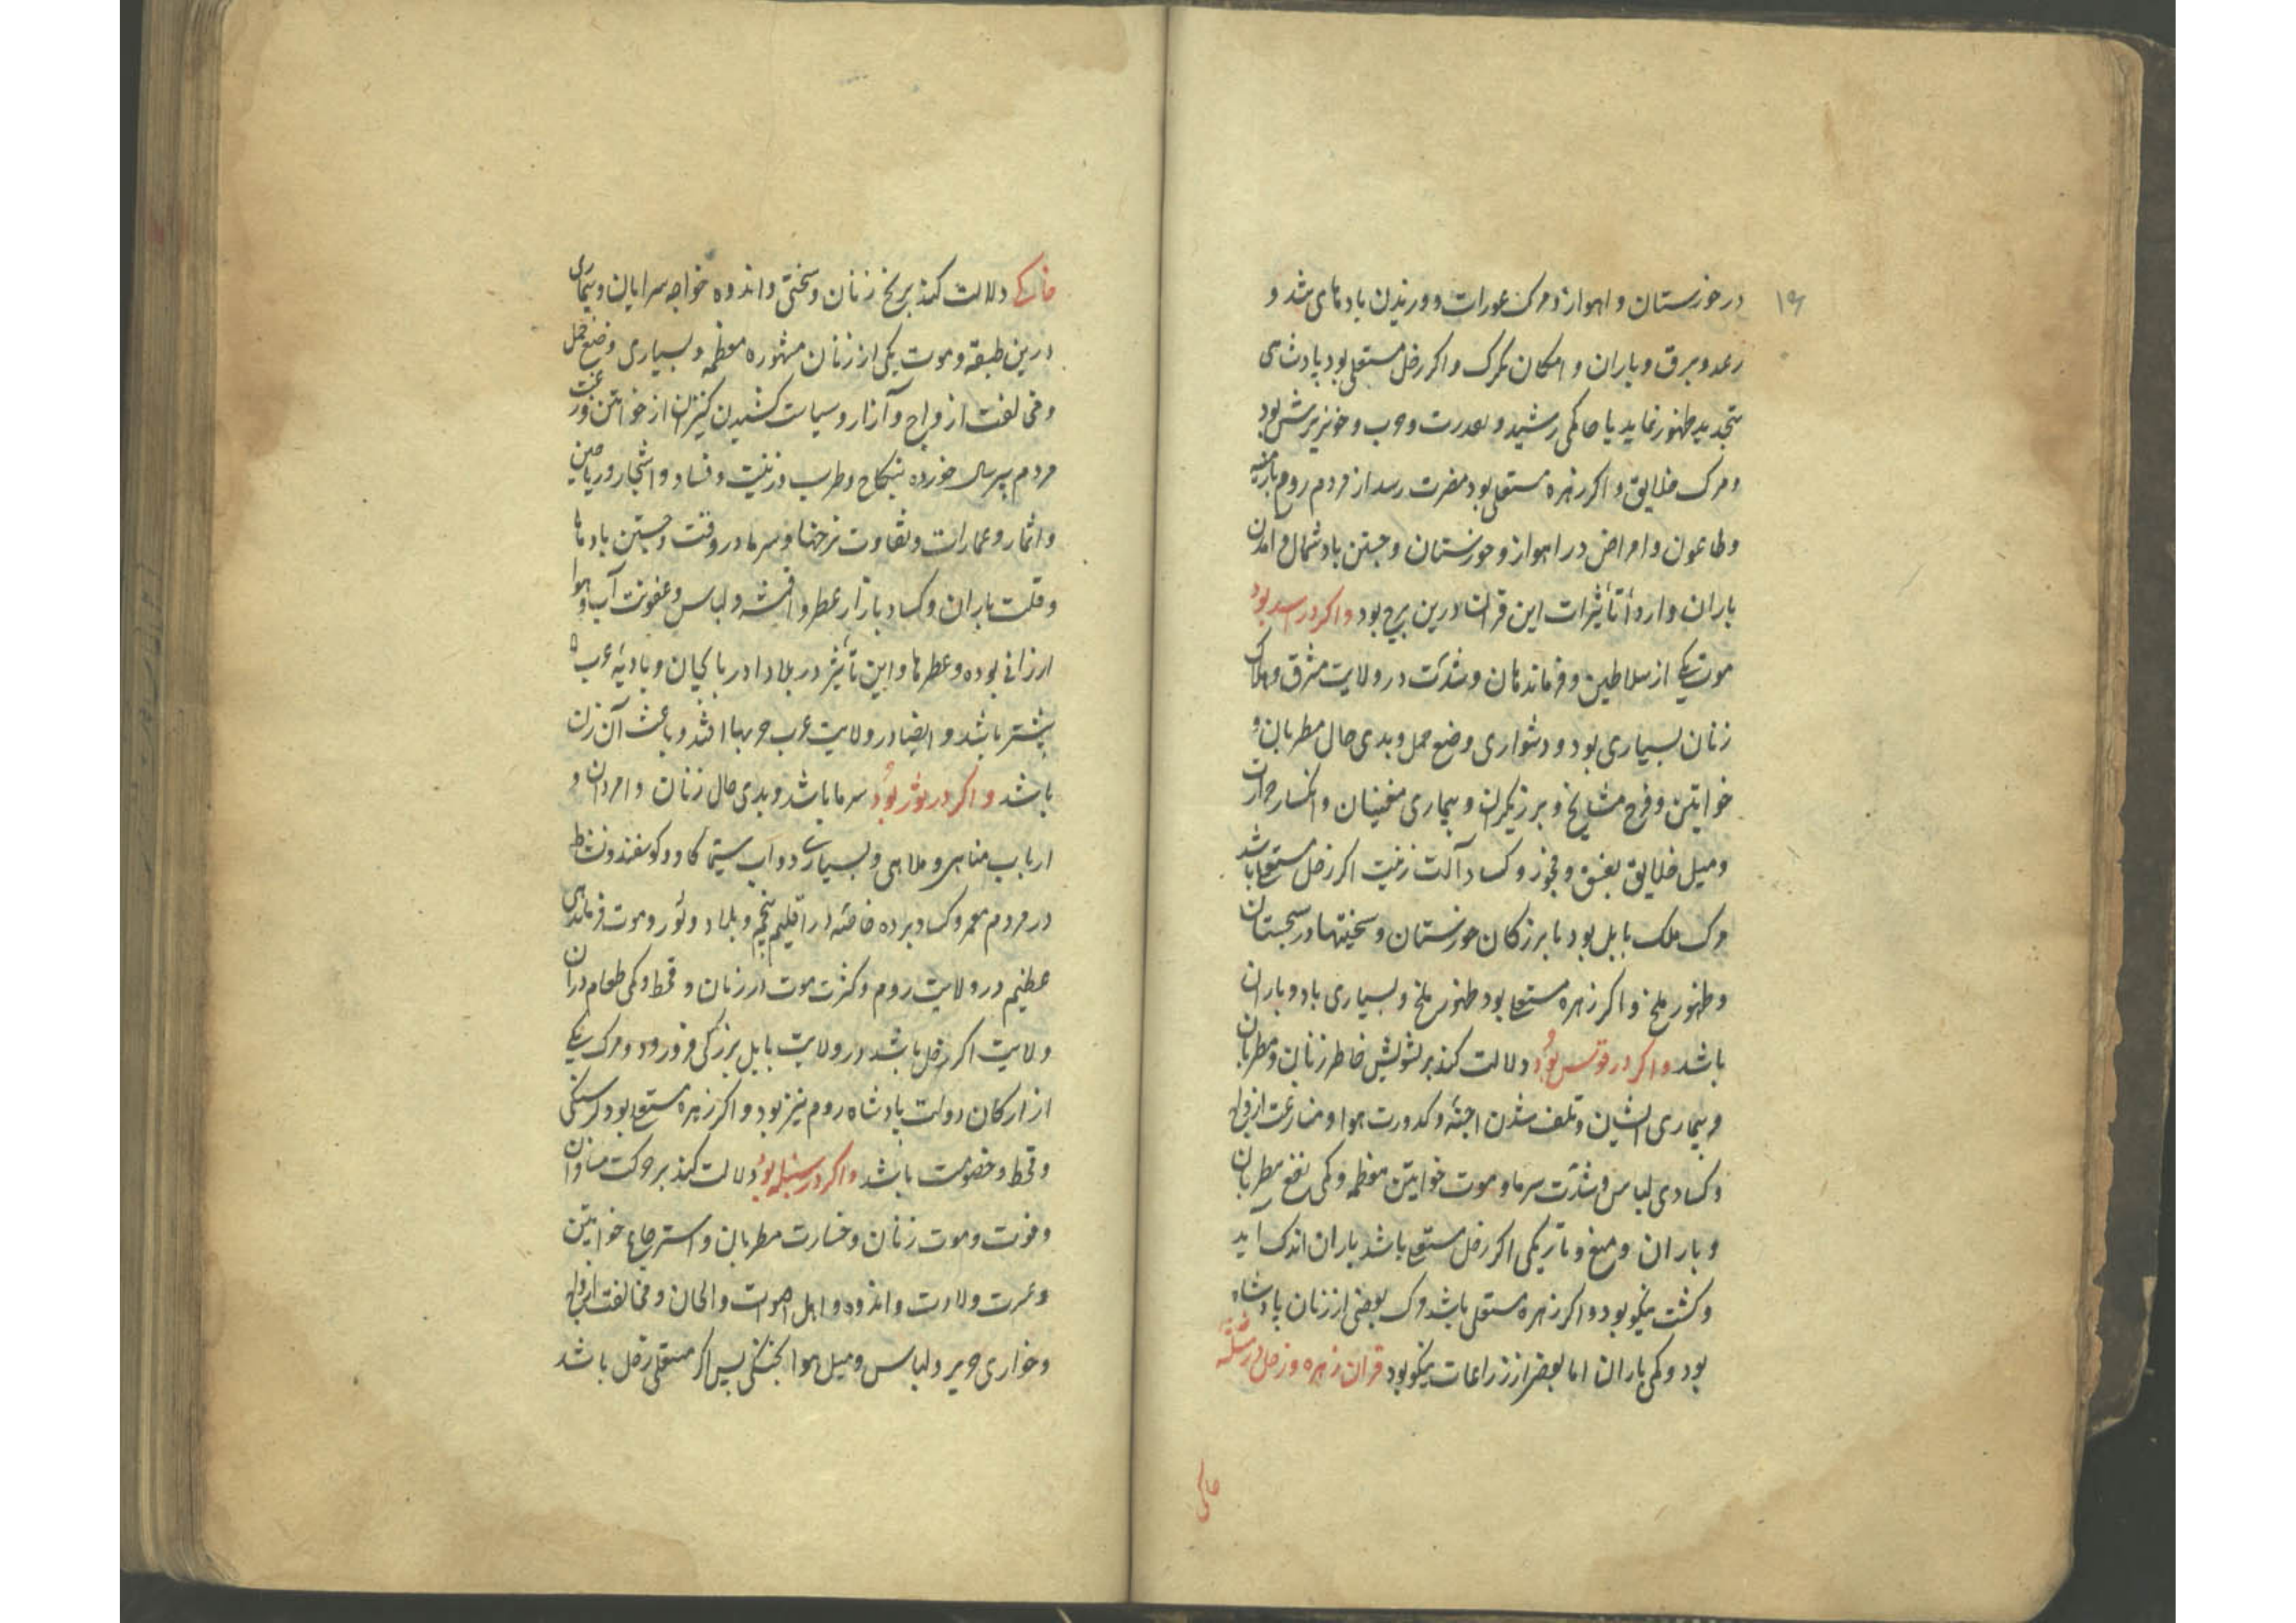 ۱۹
در خوزستان و اهواز و مرک عورات و وزیدن بادهای تند و
رعد و برق و باران و امکان تکرک و اکر زحل مستعلی بود پادشاهی
بتجدید ظهور نماید یا حاکمی رشید و بعدرت و حرب و خونریزش بود
و مرک خلایق و اکر زهره مستعلی بود مضرت رسد از مردم روم
و طاعون و امراض در اهواز و خوزستان و جستن باد شمال و امدن
باران واردأ تأثیرات این قران درین برج بود و اکر در اسد بود
موت یکی از سلاطین و فرماندهان و شدت در ولایت مشرق و هلاک
زنان بسیاری بود و دشواری وضع حمل و بدی حال مطربان و
خواتین و فرح مشایخ و برزیکران و بیماری مخنیثان و انکسار حرارت
و میل خلایق بفسق و فجور و کساد آلت زینت اکر زحل مستعلی باشد
مرک ملک بابل بود یا بزرکان خوزستان و سختیها در سجستان
و ظهور ملخ و اکر زهره مستعلی بود ظهور ملخ و بسیاری باد و باران
باشد و اکر در قوس بود دلالت کند بر تشویش خاطر زنان و مطربان
و بیماری ایشان و تلف شدن اجنه و کدورت هوا و منازعت ازواج
و کسادی لباس و شدت سرما و موت خواتین معظمه و کمی نفع مطربان
و باران و میغ و تاریکی اکر زحل مستعلی باشد باران اندک اید
و کشت نیکو بود و اکر زهره مستعلی باشد مرک بعضی از زنان پادشاه
بود و کمی باران اما بعضی از زراعات نیکو بود قران زهره و زحل در مثلثه
خاکی
خاکی دلالت کند بر رنج زنان و سختی و اندوه خواجه سرایان و بیماری
درین طبقه و موت یکی از زنان مشهوره معظمه و بسیاری وضع حمل
و مخالفت ازواج و آزار و سیاست کشیدن کنیزان از خواتین و رغبت
مردم پیر سال خورده بنکاح و طرب و زینت و فساد و اشجار و ریاحین
و اثمار و عمارات و تفاوت نرخها و سرما در وقت و جستن بادها
و قلت باران و کساد بازار عطر و اقمشه و لباس و عفونت آب و هوا
ارزانی بوده و عطرها و این تأثیر در بلاد ادربایجان و بادیه عرب
بیشتر باشد و ایضا در ولایت عرب حربها افتد و باعث آن زنان
باشد و اکر در ثور بود سرما باشد و بدی حال زنان و امردان و
ارباب مناهی و ملاهی و بسیاری دواب سیما کاو و کوسفند و نشاط
در مردم معمر و کساد برده خاصه در اقلیم پنجم و بلاد و ثور و موت فرماندهی
عظیم در ولایت روم و کثرت موت در زنان و قحط و کمی طعام در ان
ولایت اکر زحل باشد در ولایت بابل بزرکی فرو رود و مرک یکی
از ارکان دولت پادشاه روم نیز بود و اکر زهره مستعلی بود کرسنکی
و قحط و خصومت باشد و اکر در سنبله بود دلالت کند بر حرکت
و فوت و موت زنان و خسارت مطربان و استرجاع خواتین
و عسرت ولادت و اندوه و اهل اصوات و الحان و مخالفت ازواج
و خواری حریر و لباس و میل هوا بخشکی پس اکر مستعلی زحل باشد